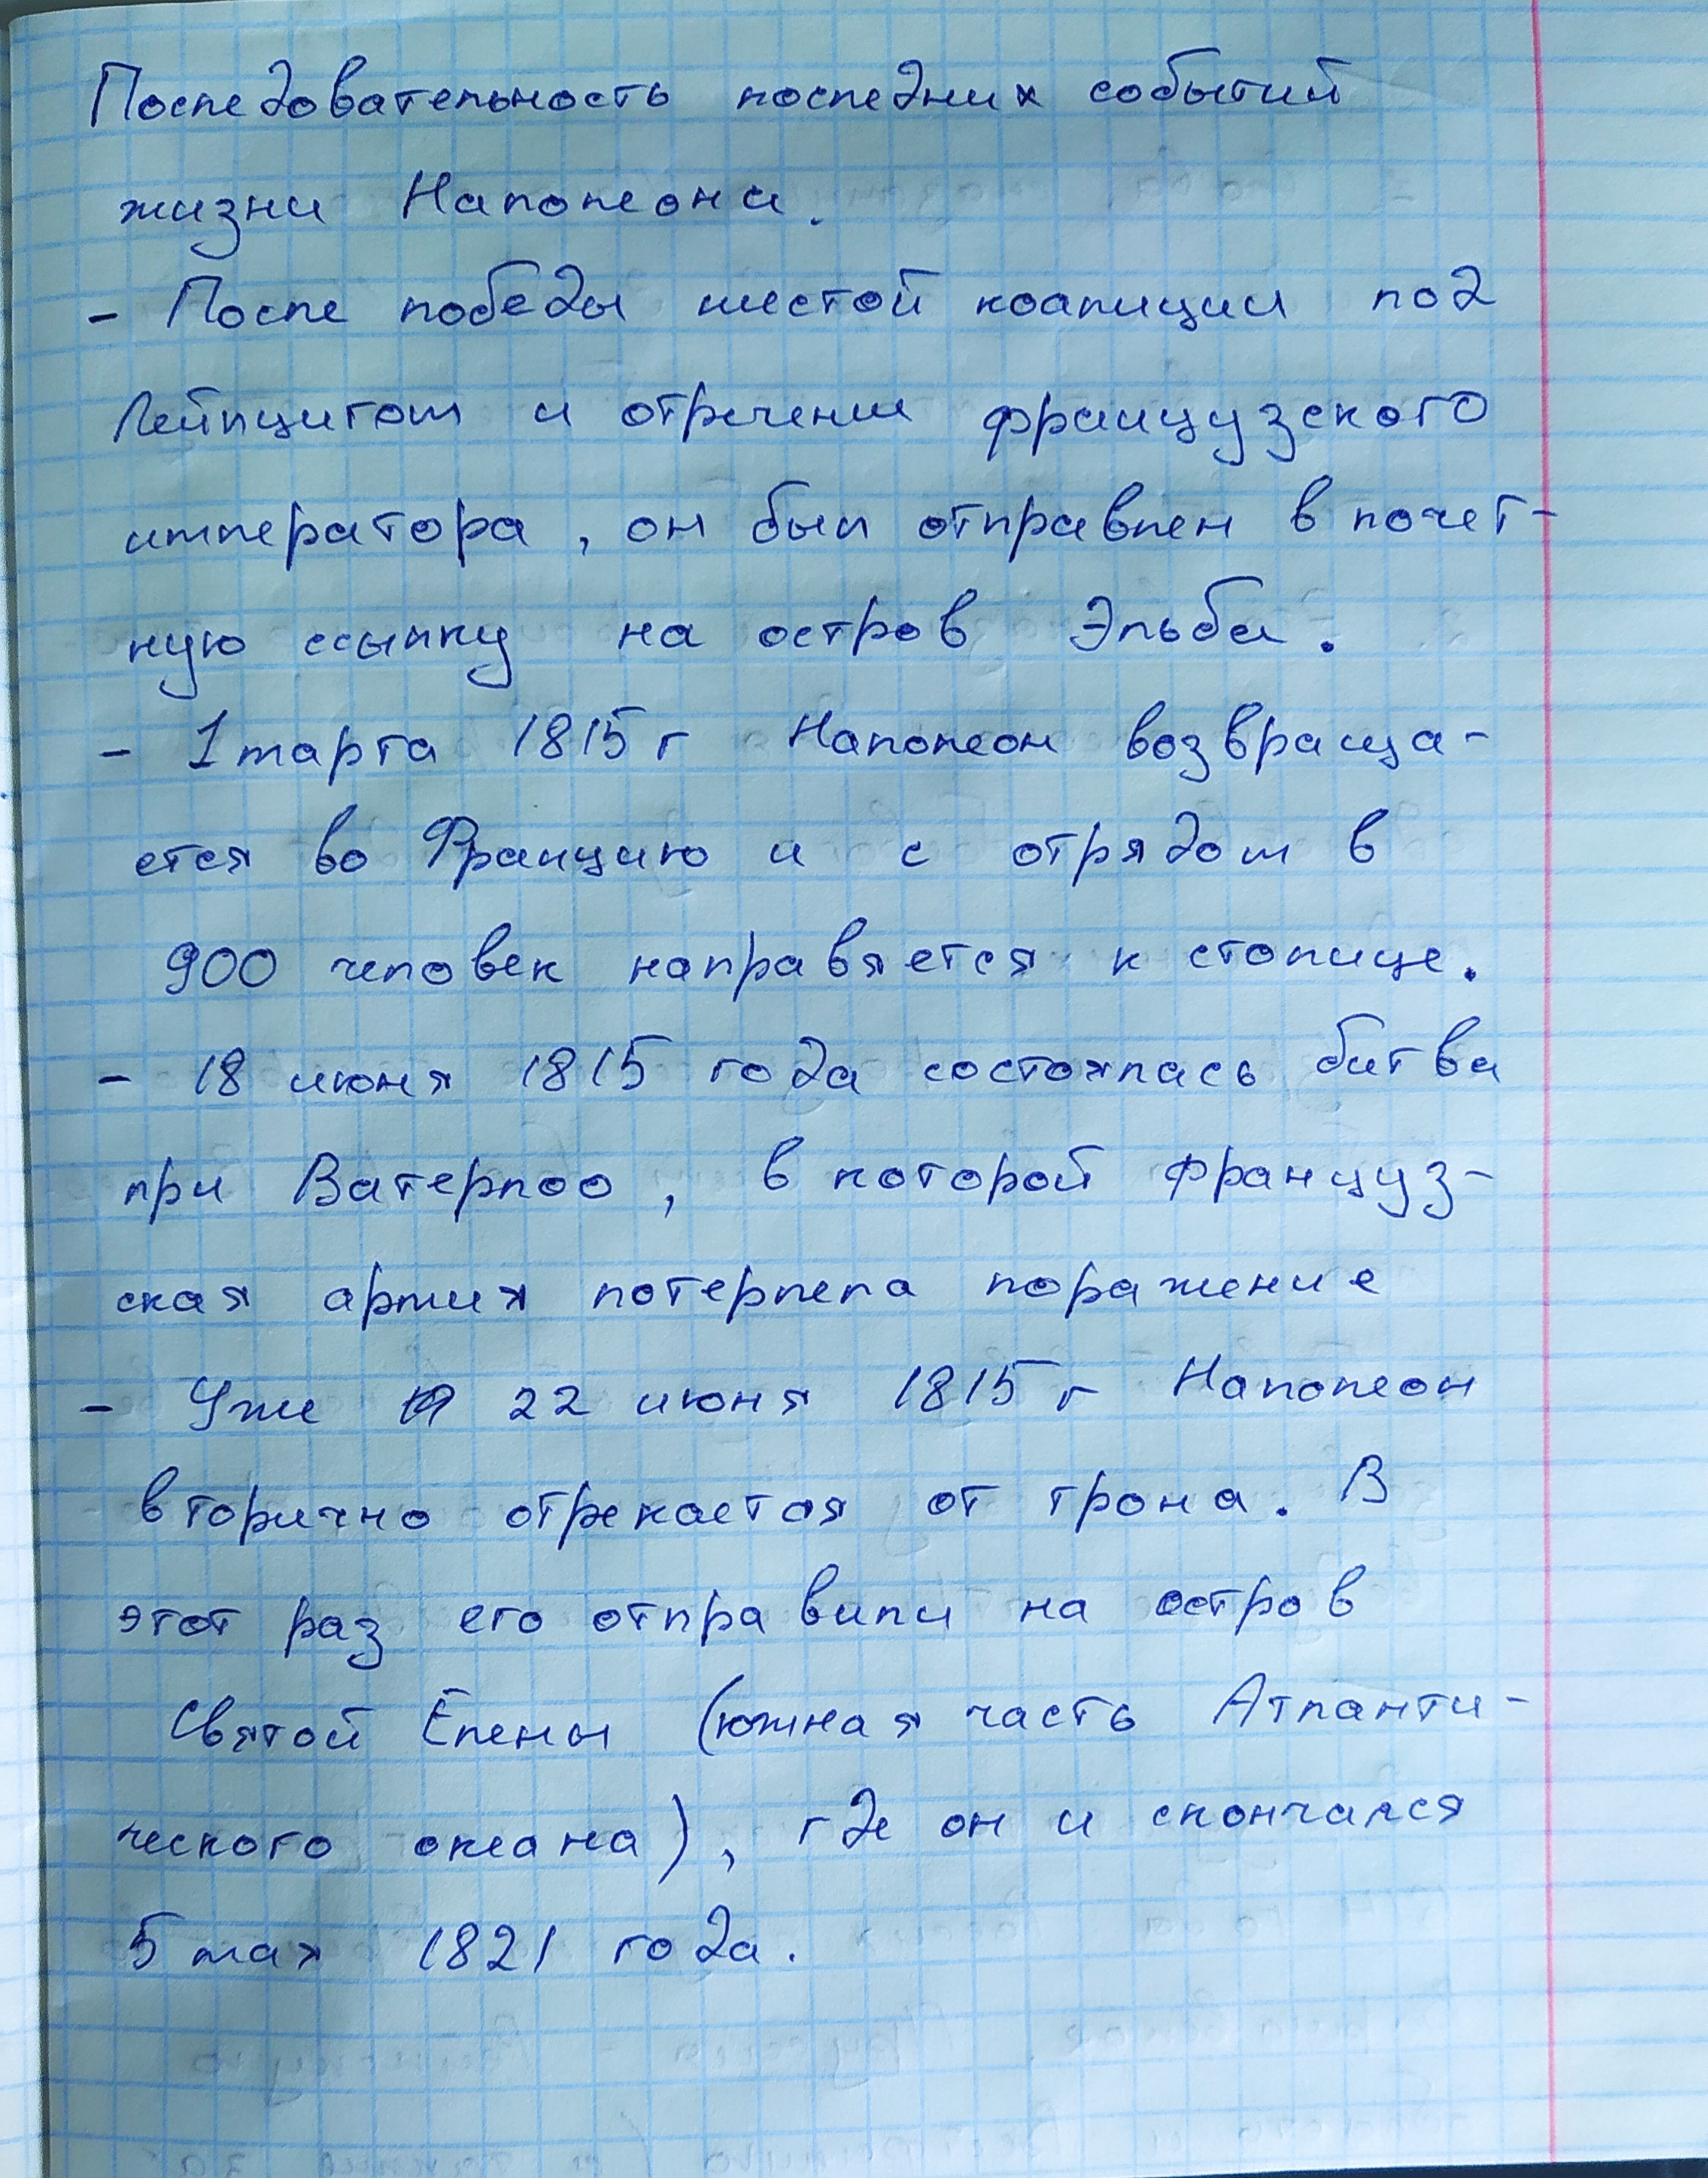 Последовательность последних событий
жизни Наполеона.
- После победы шестой коалиции под
Лейпцигом и отречении французского
императора, он был отправлен в почет-
ную ссылку на остров Эльба.
- 1 марта 1815 г Наполеон возвраща-
ется во Францию и с отрядом в
900 человек направяется к столице.
- 18 июня 1815 года состоялась битва
при Ватерлоо, в которой француз-
ская армия потерпела поражение
- Уже 22 июня 1815 г Наполеон
вторично отрекается от трона. В
этот раз его отправили на остров
Святой Елены (южная часть Атланти-
ческого океана), где он и скончался
5 мая 1821 года.